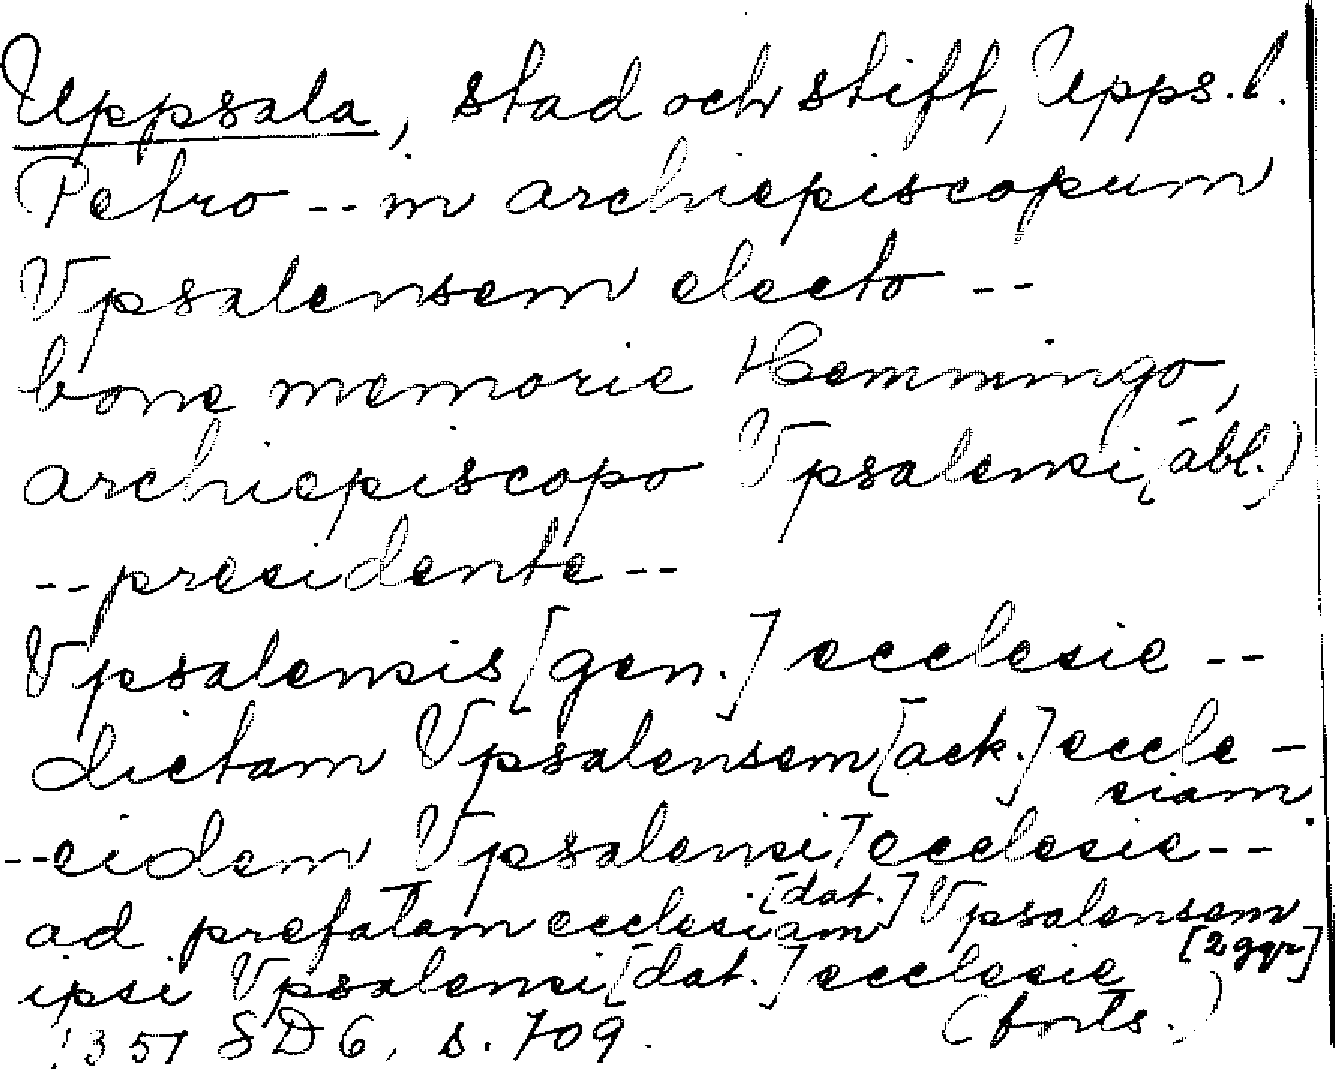 Uppsala, stad och stift, Upps. l.
Petro -- in archiepiscopum
Vpsalensem electo --
bone memorie Hemmingo,
archiepiscopo Vpsalensi (abl.)
-- presidente --
Vpsalensis [gen.] ecclesie --
dictam Vpsalensem [ack.] eccle-
siam
-- eidem Vpsalensi ecclesie --
[dat.]
ad prefatam ecclesiam Vpsalensem
[2 ggr]
ipsi Vpsalensi [dat.] ecclesie
1351 SD 6, s. 709. (forts.)